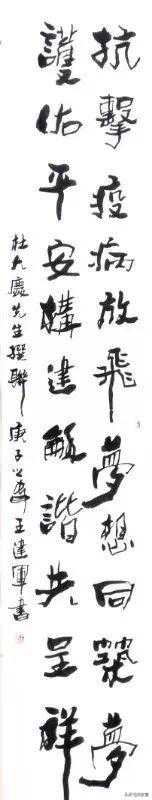 抗擊疫病放飛夢想同築夢
護佑平安構建龢諧共呈祥
杜先生撰聯庚子春王建軍書